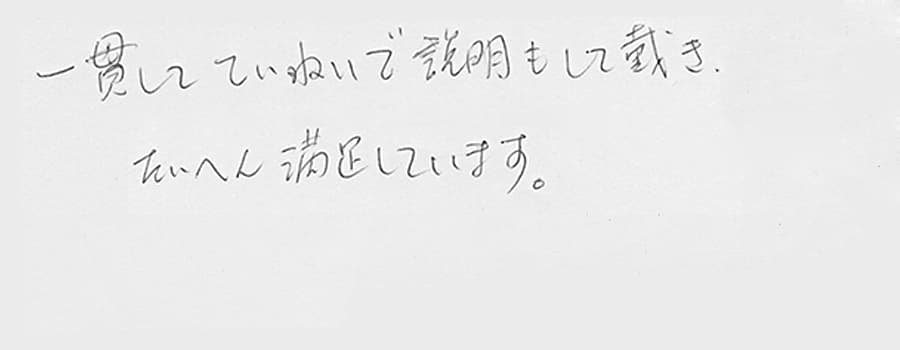 一貫して ていねいで 説明もして戴き.
たいへん 満足しています。